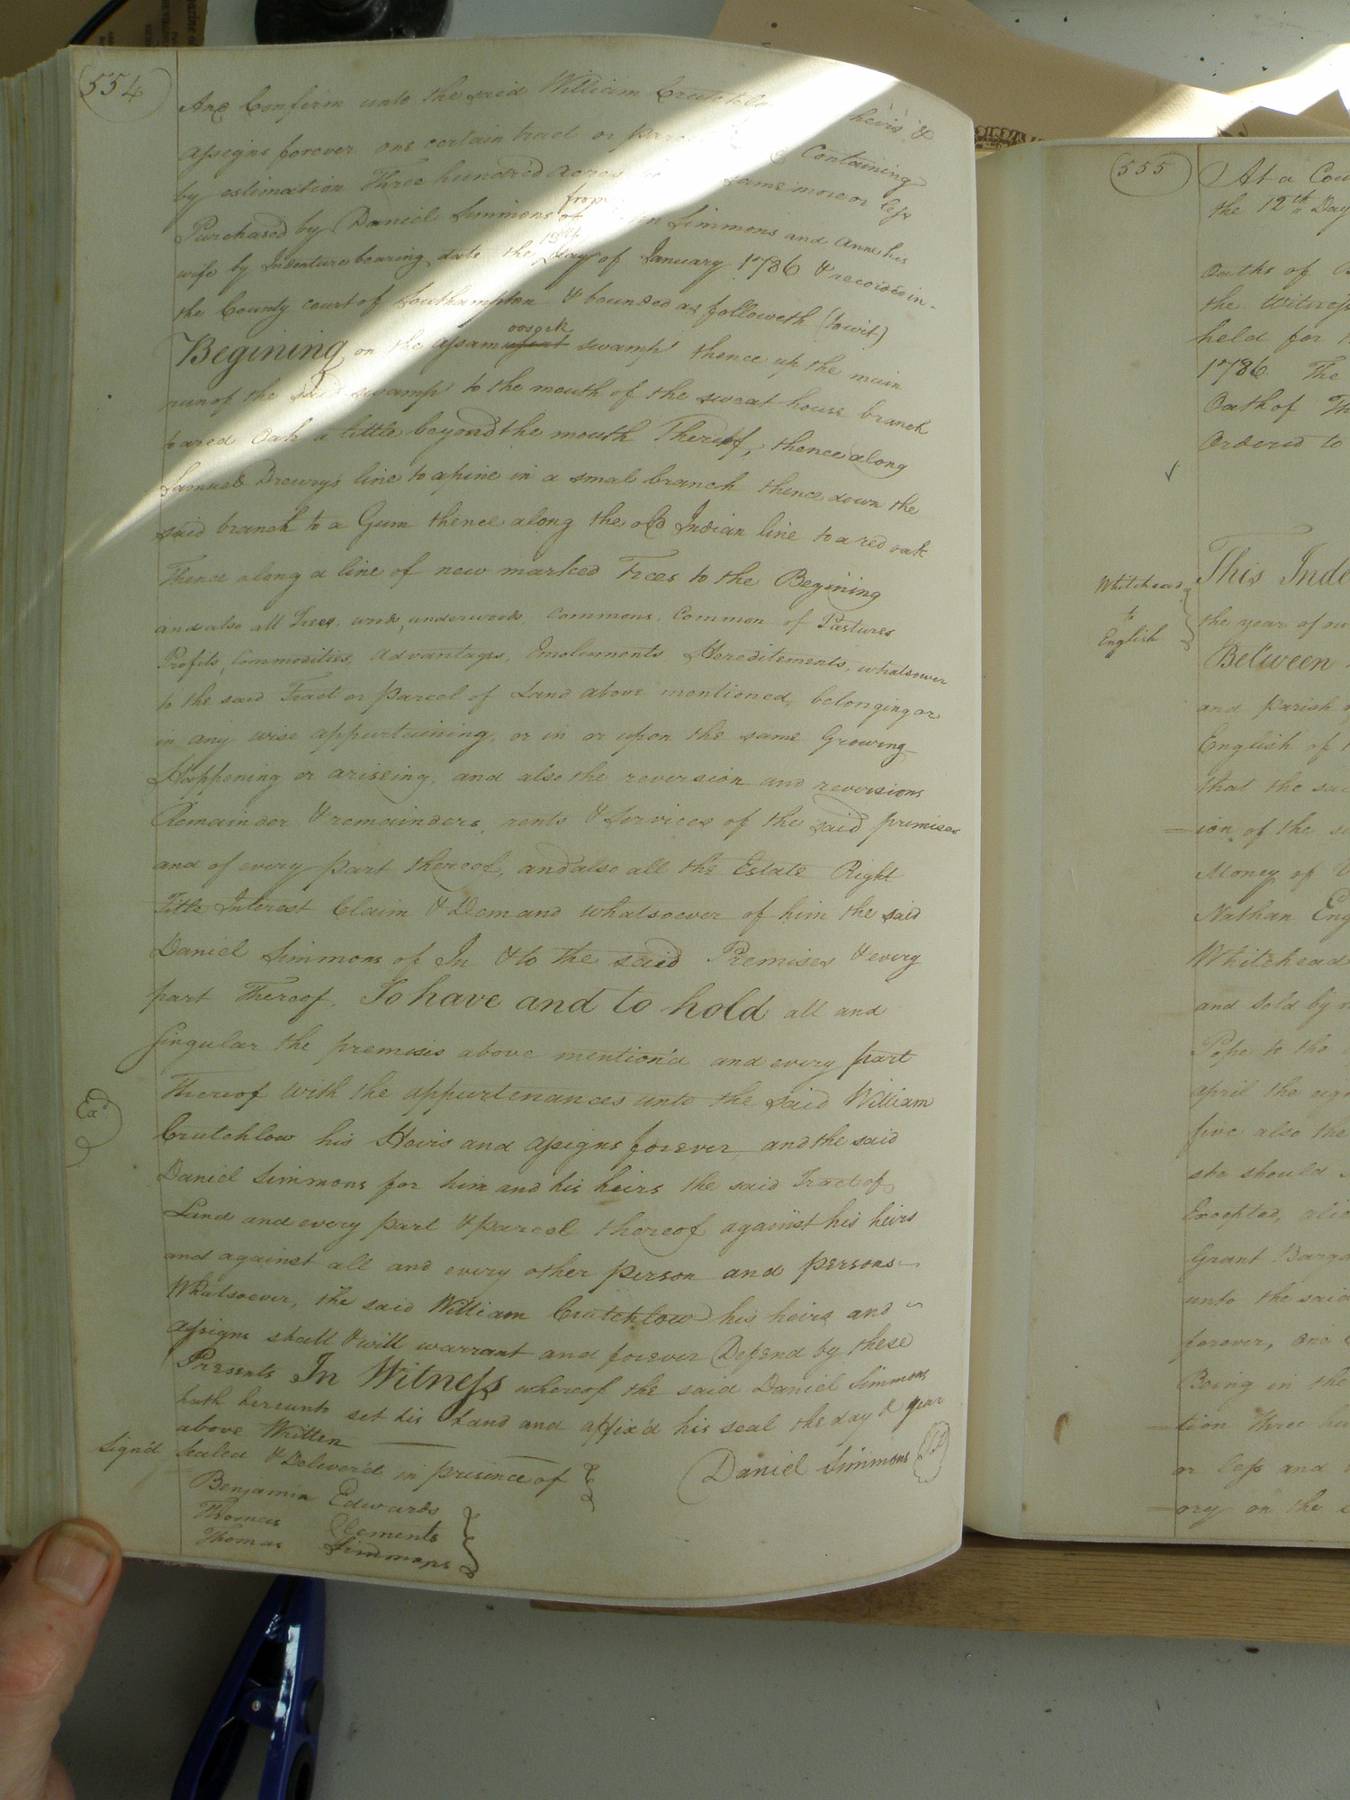 554
And Confirm unto the said William Crutchlo heirs &
assigns forever one certain tract or parc Containing
by estimation Three hundred acres same more or less
Purchased by Daniel Simmons from of Simmons and Anne his
wife by Indenture bearing date the 12th day of January 1786 & recorded in
the County court of Southampton & bounded as followeth (to wit)
Begining on the Assamoosock swamp thence up the main
run of the said swamp to the mouth of the sweat house branch
to a red Oak a little beyond the mouth Thereof, thence along
Samuel Drewrys line to a pine in a smal branch thence down the
said branch to a Gum thence along the old Indian line to a red oak
Thence along a line of new marked Trees to the Begining
and also all Trees, woods, underwoods, commons, Common of Pastures
Profits, Commodities, Advantages, Emoluments Hereditements, whatsoever
to the said Tract or parcel of Land above mentioned, belonging or
in any wise appurtaining, or in or upon the same Growing
Happening or arissing, and also the reversion and reversions
Remainder & remainders, rents & Services of the said premises
and of every part thereof, and also all the Estate Right
Title Interest Claim & Demand whatsoever of him the said
Daniel Simmons of In & to the said Premises & every
part Thereof. To have and to hold all and
Singular the premises above mention'd and every part
Thereof with the appurtenances unto the said William
Crutchlow his Heirs and assigns forever, and the said
Daniel Simmons for him and his heirs the said Tract of
Land and every part & parcel thereof against his heirs
and against all and every other person and persons
Whatsoever, the said William Crutchlow his heirs and
assigns shall & will warrant and forever Defend by these
Presents In Witness whereof the said Daniel Simmons
hath hereunto set his Hand and affix'd his seal the day & year
above Written
Sign'd Sealed & Deliver'd in presence of
Daniel Simmons
Benjamin Edwards
Thomas Clements
Thomas Simmons
Exd
555
At a Cou
the 12th Day
Oaths of
the Witness
held for
1786 The
Oath of Th
Ordered to
Whitehead
to
English
This Inde
the year of ou
Between
and parish
English of
that the sai
ion of the s
Money of V
Nathan Eng
Whitehead
and sold by
Pope to the
april the eig
five also the
she should
Excepted, also
Grant Barga
unto the said
forever, one
Being in the
tion three hu
or less and
ory on the